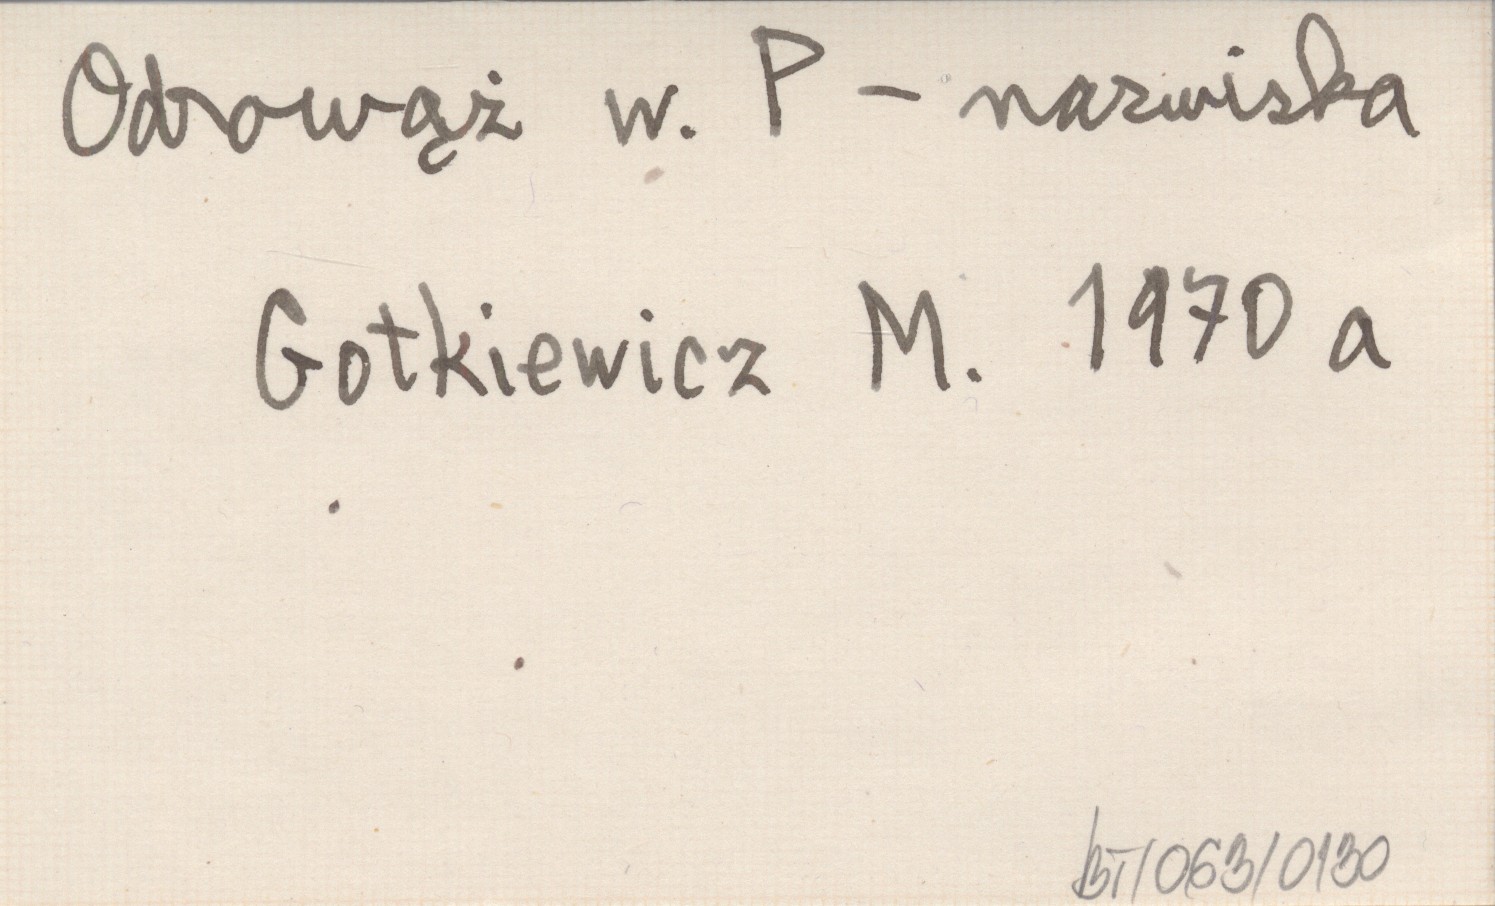 Odrowąż w. P - nazwiska
Gotkiewicz M. 1970 a
BT/063/0130